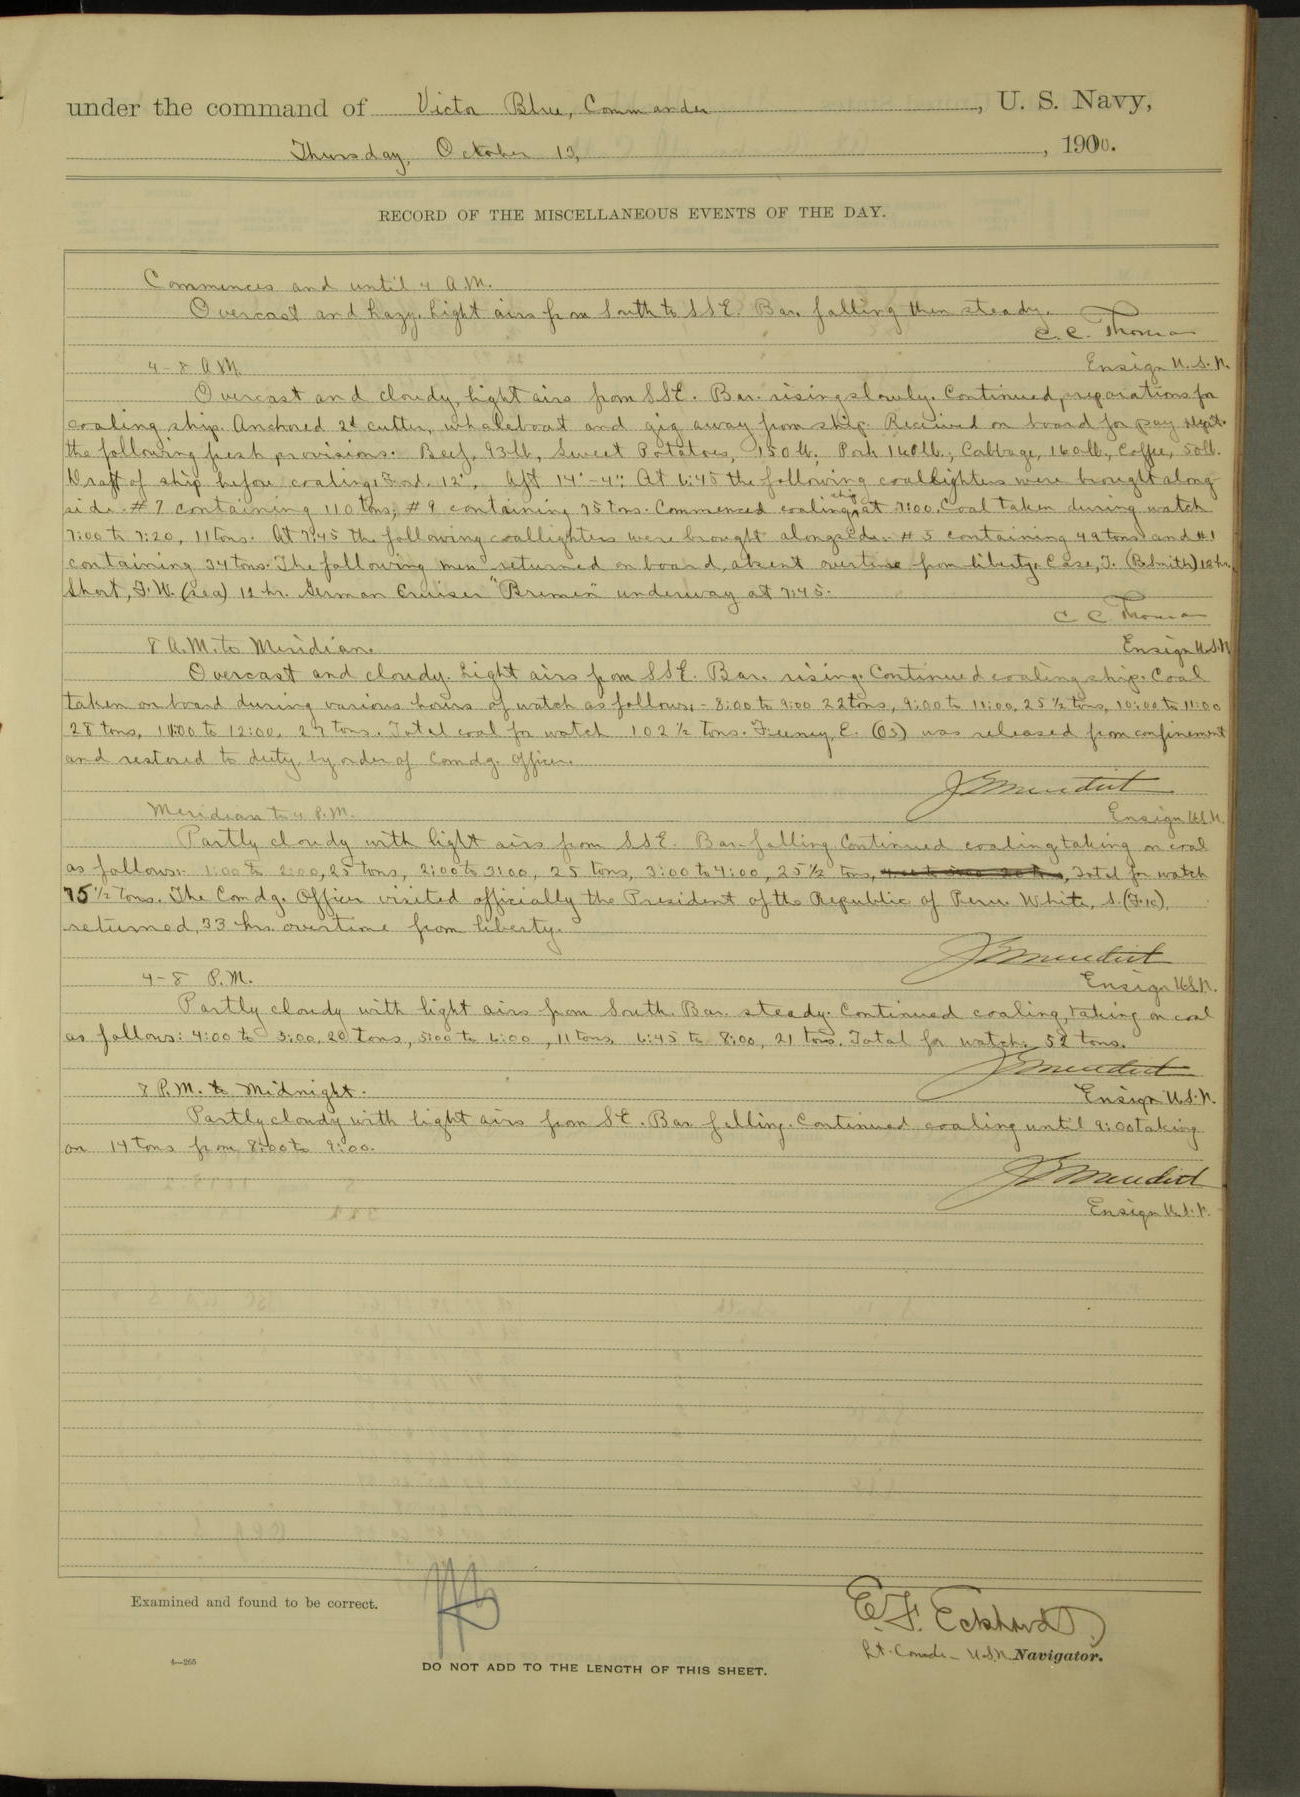 under the command of Victor Blue, Commander, U. S. Navy,
Thursday, October 13, 1910.
RECORD OF THE MISCELLANEOUS EVENTS OF THE DAY.
Commences and until 4 A.M.
Overcast and hazy. Light airs from South to SSE. Bar. falling then steady.
C. C. Thomas
4-8 A.M. Ensign U.S.N.
Overcast and cloudy, light airs from SSE. Bar. rising slowly. Continued preparations for
coaling ship. Anchored 2d cutter, whaleboat and gig away from ship. Received on board for pay dept.
the following fresh provisions. Beef, 93 lb, Sweet Potatoes, 150 lb, Pork 140 lb., Cabbage, 160 lb, Coffee, 50 lb.
Draft of ship before coaling: Ford. 12', Aft 14'-4": At 6:45 the following coallighters were brought along
side. #7 containing 110 tons, #9 containing 75 tons. Commenced coaling ship at 7:00. Coal taken during watch
7:00 to 7:20, 11 tons. At 7:45 the following coallighters were brought alongside. #5 containing 49 tons and #1
containing 34 tons. The following men returned on board, absent overtime from liberty. Case, J. (B.Smith) 12 hr,
Short, F.W. (Sea) 12 hr. German Cruiser "Bremen" underway at 7:45.
C C Thomas
8 A.M. to Meridian. Ensign U.S.N
Overcast and cloudy. Light airs from SSE. Bar. rising. Continued coaling ship. Coal
taken on board during various hours of watch as follows,- 8:00 to 9:00 22 tons, 9:00 to 10:00, 25 ½ tons, 10:00 to 11:00
28 tons, 11:00 to 12:00, 27 tons. Total coal for watch 102 ½ tons. Feeney, E. (OS) was released from confinement
and restored to duty by order of Comdg. Officer.
Meridian to 4 P.M. Ensign U.S.N.
Partly cloudy with light airs from SSE. Bar. falling Continued coaling taking on coal
as follows:- 1:00 to 2:00, 25 tons, 2:00 to 3:00, 25 tons, 3:00 to 4:00, 25 ½ tons, Total for watch
75 ½ tons. The Comdg. Officer visited officially the President of the Republic of Peru. White, S. (F.1c),
returned, 33 hrs. overtime from liberty.
4-8 P.M. Ensign U.S.N.
Partly cloudy with light airs from South. Bar. steady. Continued coaling, taking on coal
as follows: 4:00 to 5:00, 20 tons, 5:00 to 6:00, 11 tons, 6:45 to 8:00, 21 tons. Total for watch. 52 tons.
8 P.M. to Midnight. Ensign U.S.N.
Partly cloudy with light airs from SE. Bar falling. Continued coaling until 9:00 taking
on 14 tons from 8:00 to 9:00.
Ensign U.S.N.
Examined and found to be correct.
E. F. Eckhardt
Lt. Comdr. U.S.N. Navigator.
4—265
DO NOT ADD TO THE LENGTH OF THIS SHEET.